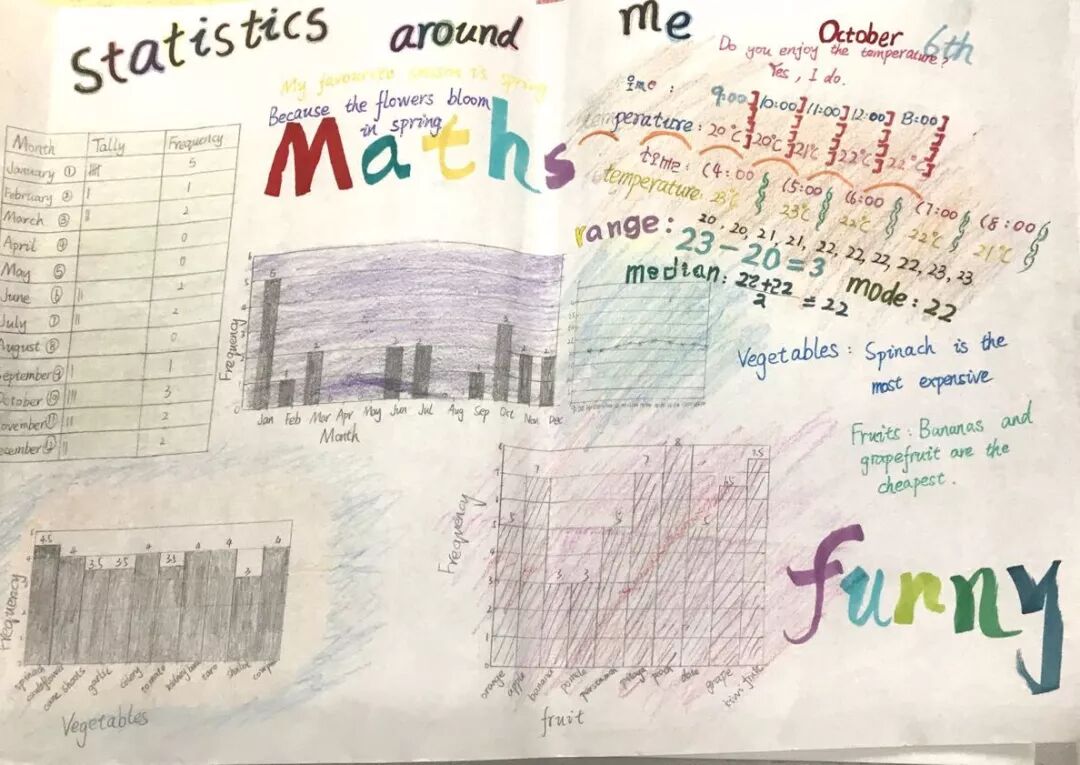 Statistics around me
October 6th
Do you enjoy the temperature?
Yes, I do.
My favourite season is spring
Because the flowers bloom
in spring
Maths
time: 9:00 10:00 11:00 12:00 13:00
temperature: 20°C 20°C 21°C 22°C 22°C
time: 14:00 15:00 16:00 17:00 18:00
temperature: 23°C 23°C 22°C 22°C 21°C
range: 20, 20, 21, 21, 22, 22, 22, 22, 23, 23
23-20=3
median: 22+22/2 = 22
mode: 22
Month Tally Frequency
January ① 5
February ② 1
March ③ 2
April ④ 0
May ⑤ 0
June ⑥ 2
July ⑦ 2
August ⑧ 0
September ⑨ 1
October ⑩ 3
November ⑪ 2
December ⑫ 2
Frequency
5 1 2 2 2 1 3 2 2
Jan Feb Mar Apr May Jun Jul Aug Sep Oct Nov Dec
Month
Vegetables: Spinach is the
most expensive
Fruits: Bananas and
grapefruit are the
cheapest.
Frequency
4.5 4 3.5 3.5 4 3.5 4 4 3 4
spinach cauliflower cane shoots garlic celery tomato kidney bean taro
Vegetables
Frequency
5 7 3 3 5 7 8 5 6.5 7.5
orange apple banana pomelo persimmon papaya peach date grape kiwi fruit
fruit
funny